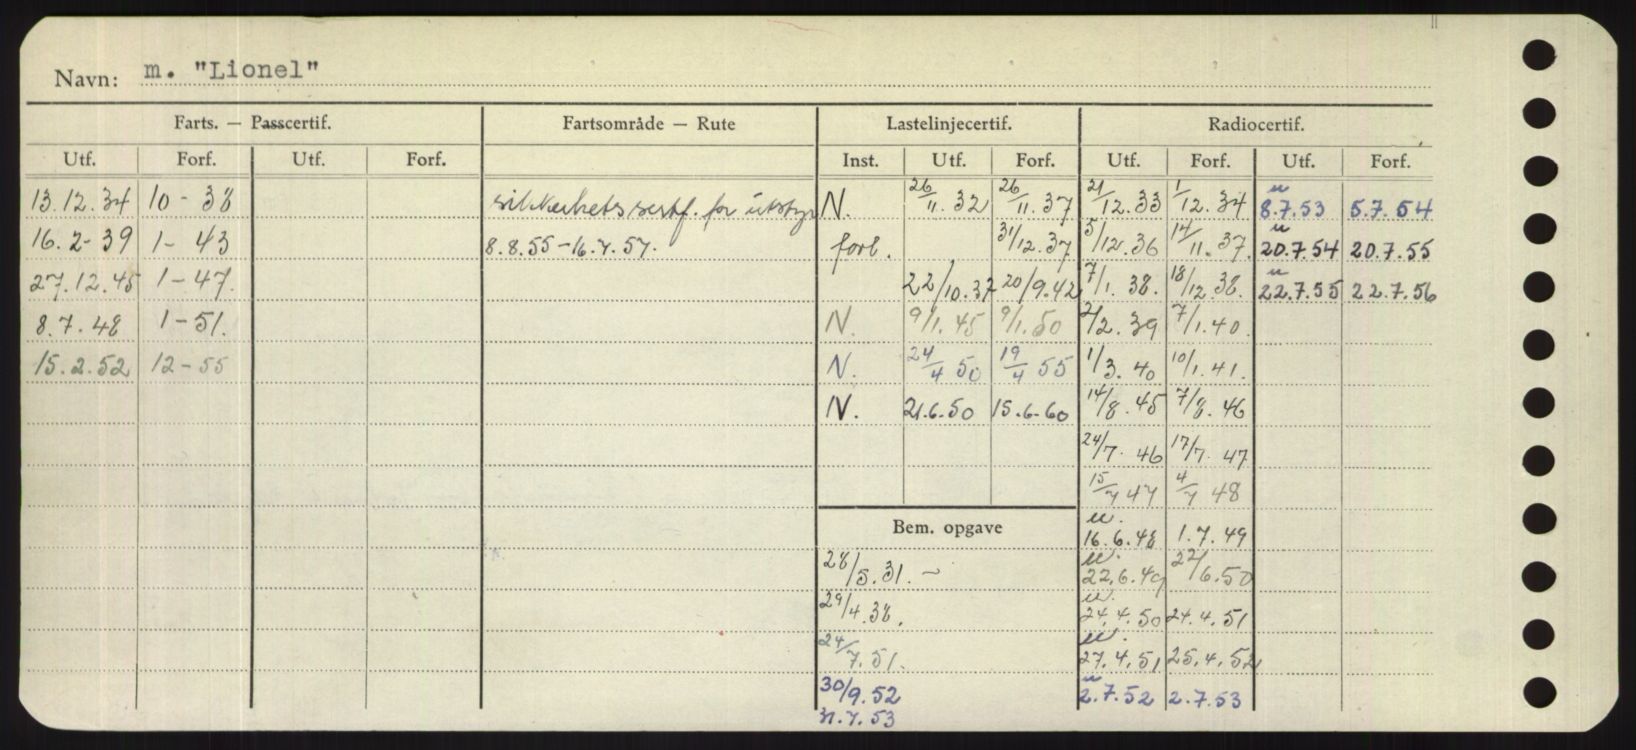 Navn: m. "Lionel"
Farts. — Passcertif. Fartsområde — Rute Lastelinjecertif. Radiocertif.
Utf. Forf. Utf. Forf. Inst. Utf. Forf. Utf. Forf. Utf. Forf.
13.12.34 10-38 sikkerhetssertf. for utstyr N. 26/11.32 26/11.37 21/12.33 1/12.34 u 8.7.53 5.7.54
16.2-39 1-43 8.8.55-16.7.57. forl. 31/12.37 5/12.36 14/11.37. u 20.7.54 20.7.55
27.12.45 1-47. 22/10.37 20/9.42 7/1.38. 18/12.38. u 22.7.55 22.7.56
8.7.48 1-51. N. 9/1.45 9/1.50 2/2.39 7/1.40.
15.2.52 12-55 N. 24/4 50 19/4 55 1/3.40 10/1.41.
N. 21.6.50 15.6.60 14/8.45 7/8.46
24/7.46 17/7.47
15/7 47 4/7 48
Bem. opgave u. 16.6.48 1.7.49
28/5.31. — u. 22.6.49 22/6.50
29/4.38. u. 24.4.50 24.4.51
24/7.51. u. 27.4.51 25.4.52
30/9.52 u 2.7.52 2.7.53
31.7.53